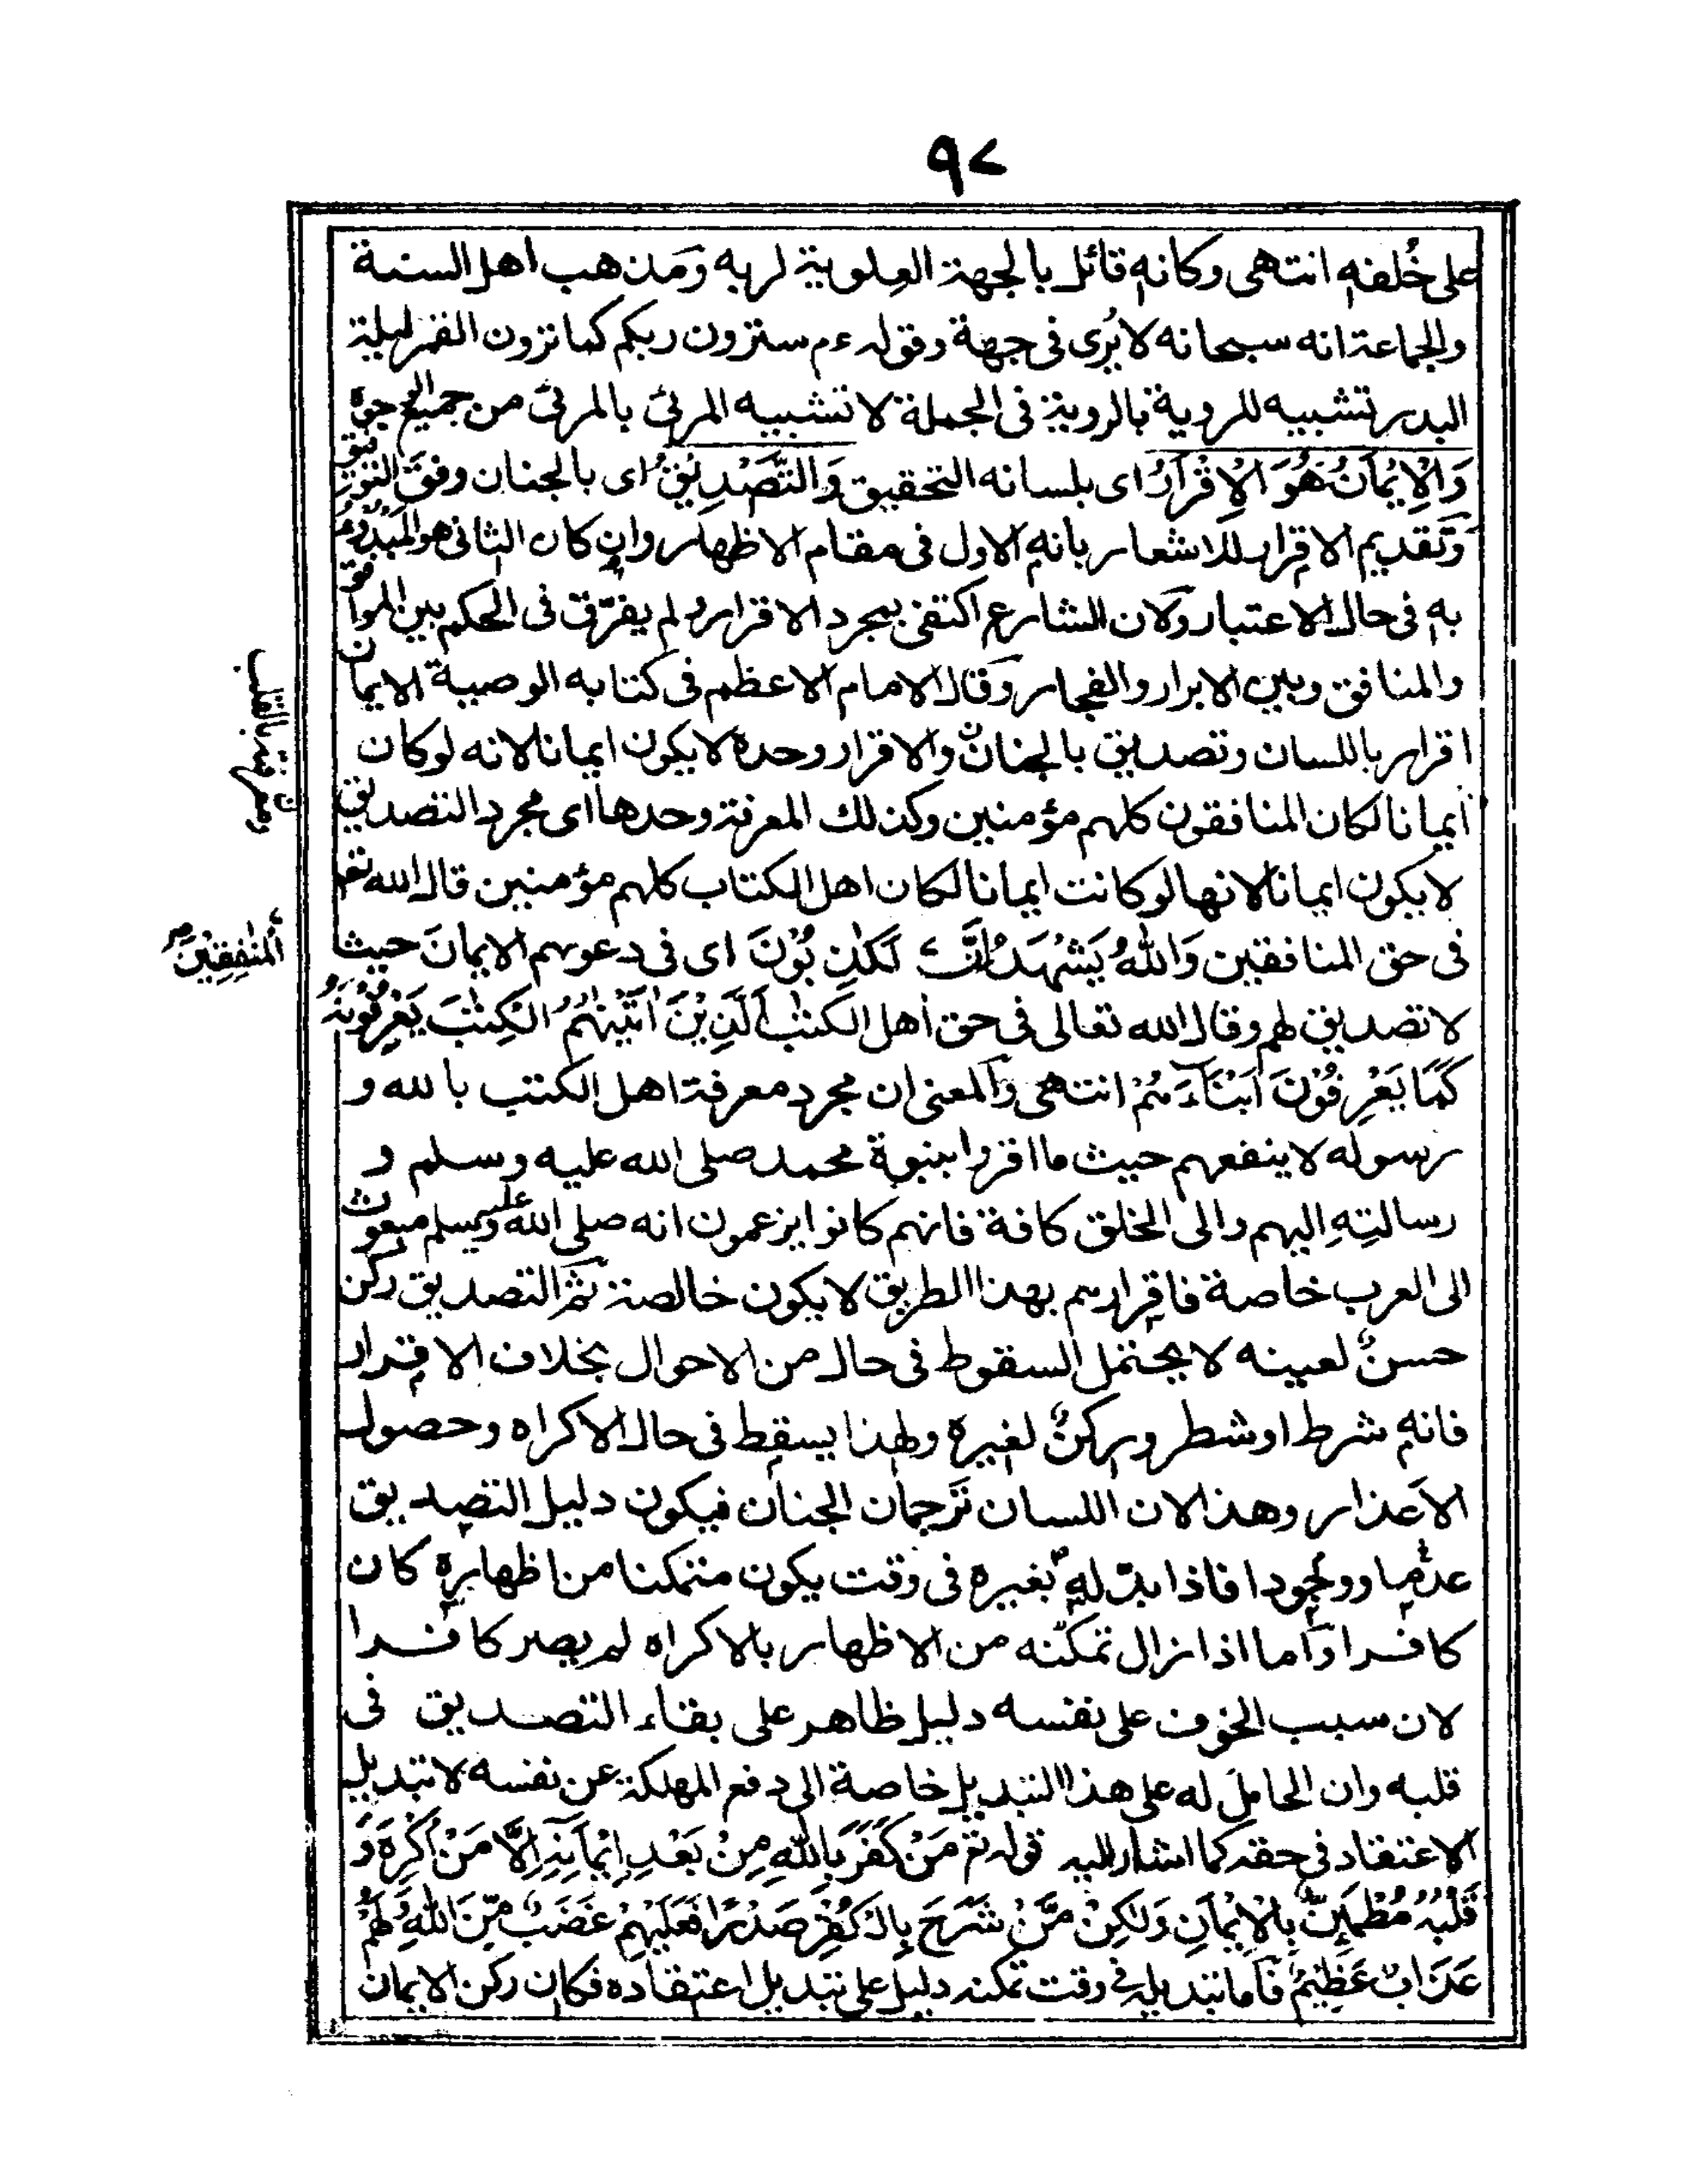 ٩٧
على خلفه انتهى وكانه قائل بالجهة العلوية لربه ومذهب اهل السنة
والجماعة انه سبحانه لا يُرى فى جهة وقوله ءم سترون ربكم كما ترون القمر ليلة
البدر تشبيه للروية بالروية فى الجملة لا تشبيه المرئى بالمرئى من جميع الوجوه
وَالْاِيْمَانُ هُوَ الْاِقْرَارُ اى بلسانه التحقيق وَالتَّصْدِيْقُ اى بالجنان وفق التوفيق
وتقديم الاقرار للاشعار بانه الاول فى مقام الاظهار وان كان الثانى هو المبدؤ
به فى حال الاعتبار ولان الشارع اكتفى بمجرد الاقرار ولم يفرّق فى الحكم بين الموافق
والمنافق وبين الابرار والفجار وقال الامام الاعظم فى كتابه الوصية الايمان
اقرار باللسان وتصديق بالجنان والاقرار وحده لا يكون ايمانا لانه لو كان
ايمانا لكان المنافقون كلهم مؤمنين وكذلك المعرفة وحدها اى مجرد التصديق
لا يكون ايمانا لانها لو كانت ايمانا لكان اهل الكتاب كلهم مؤمنين قال الله تعـ
فى حق المنافقين وَاللّٰهُ يَشْهَدُ اِنَّ لَكٰذِبُوْنَ اى فى دعوىهم الايمان حيث
المُنٰفِقِيْنَ
لا تصديق لهم وقال الله تعالى فى حق اهل الكتٰب اَلَّذِيْنَ اٰتَيْنٰهُمُ الْكِتٰبَ يَعْرِفُوْنَهٗ
كَمَا يَعْرِفُوْنَ اَبْنَآءَهُمْ انتهى والمعنى ان مجرد معرفة اهل الكتٰب بالله و
رسوله لا ينفعهم حيث ما اقروا بنبوة محمد صلى الله عليه وسلم و
رسالتهِ اليهم والى الخلق كافة فانهم كانوا يزعمون انه صلى الله عليه وسلم مبعوث
الى العرب خاصة فاقرارهم بهذا الطريق لا يكون خالصة ثم التصديق ركن
حسنٌ لعينه لا يحتمل السقوط فى حال من الاحوال بخلاف الاقرار
فانه شرط او شطر وركنٌ لغيره ولهذا يسقط فى حال الاكراه وحصول
الاعذار وهذا لان اللسان ترجمان الجنان فيكون دليل التصديق
عدما ووجودا فاذا بدّله بغيره فى وقت يكون متمكنا من اظهاره كان
كافرا واما اذا زال تمكّنه من الاظهار بالاكراه لم يصر كافرا
لان سبب الخوف على نفسه دليل ظاهر على بقاء التصديق فى
قلبه وان الحامل له على هذا التبديل خاصة الى دفع المهلكة عن نفسه لا تبديل
الاعتقاد فى حقه كما اشار اليه قوله تع مَنْ كَفَرَ بِاللّٰهِ مِنْ بَعْدِ اِيْمَانِهٖ اِلَّا مَنْ اُكْرِهَ وَ
قَلْبُهٗ مُطْمَئِنٌّ بِالْاِيْمَانِ وَلٰكِنْ مَّنْ شَرَحَ بِالْكُفْرِ صَدْرًا فَعَلَيْهِمْ غَضَبٌ مِّنَ اللّٰهِ وَلَهُمْ
عَذَابٌ عَظِيْمٌ فاما تبديله فى وقت تمكنه دليل على تبديل اعتقاده فكان ركن الايمان